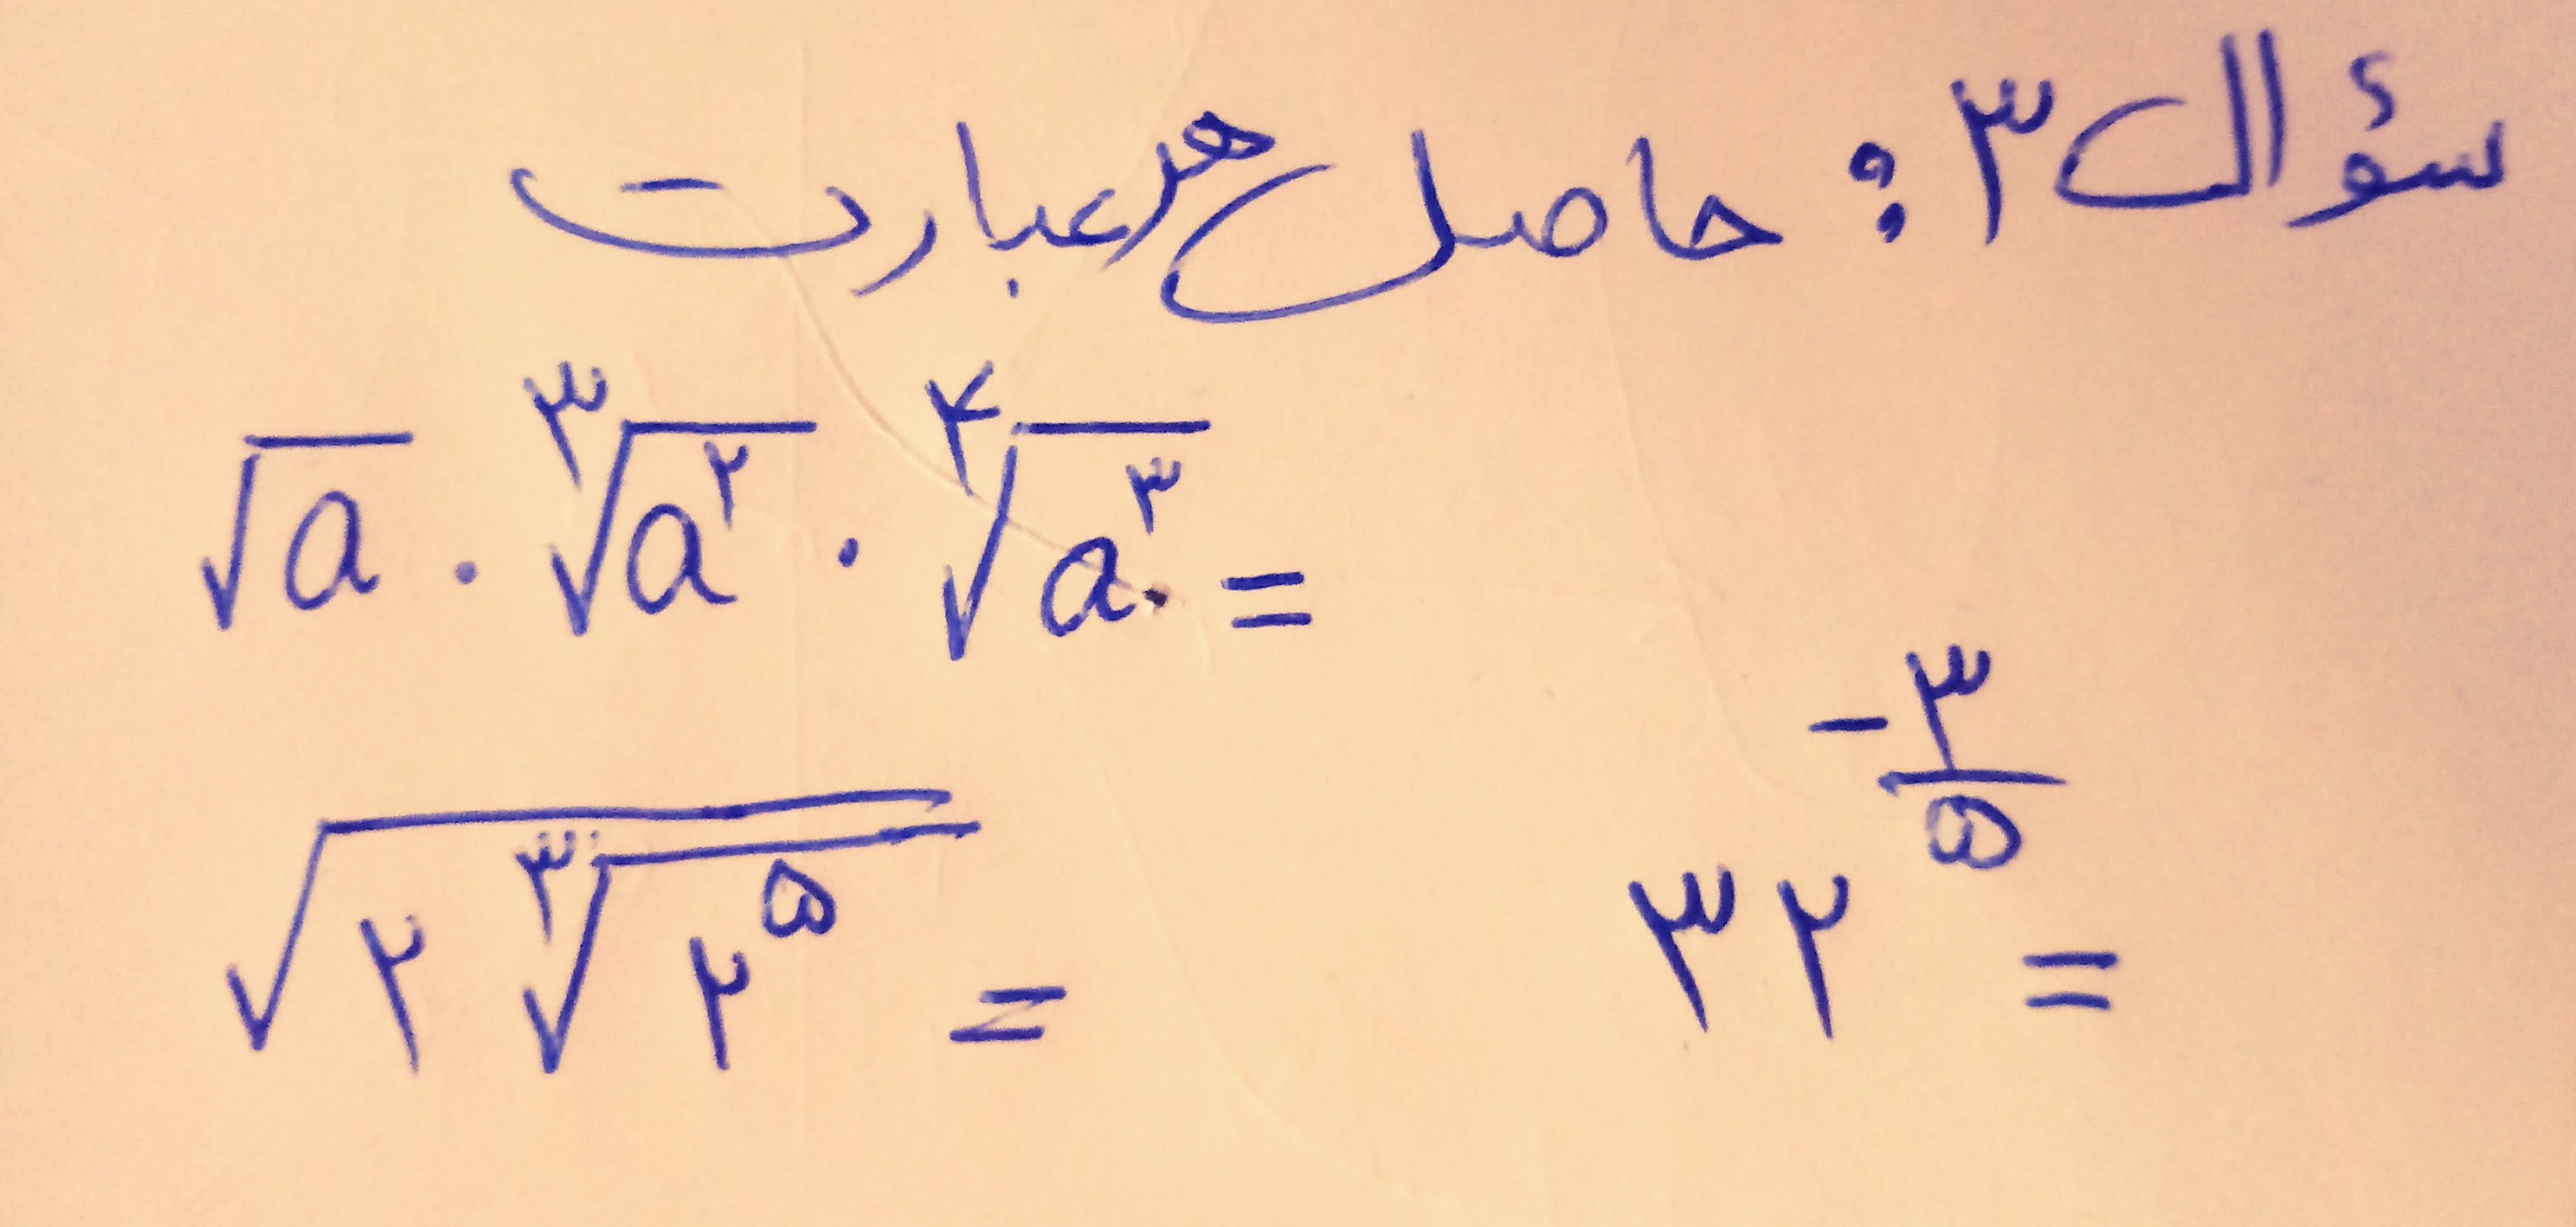 سؤال ۳: حاصل هر عبارت
√a . ۳√a^۲ . ۴√a^۳ =
۳۲^(-۳/۵) =
√(۲ ۳√(۲^۵)) =